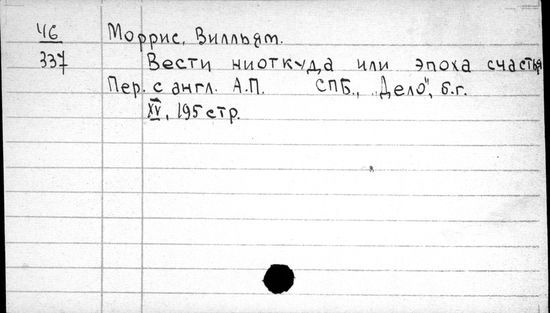 46
Моррис, Вилльям.
337
Вести ниоткуда или эпоха счастья
Пер. с англ. А.П. СПБ., "Дело", б.г.
XV, 195 стр.